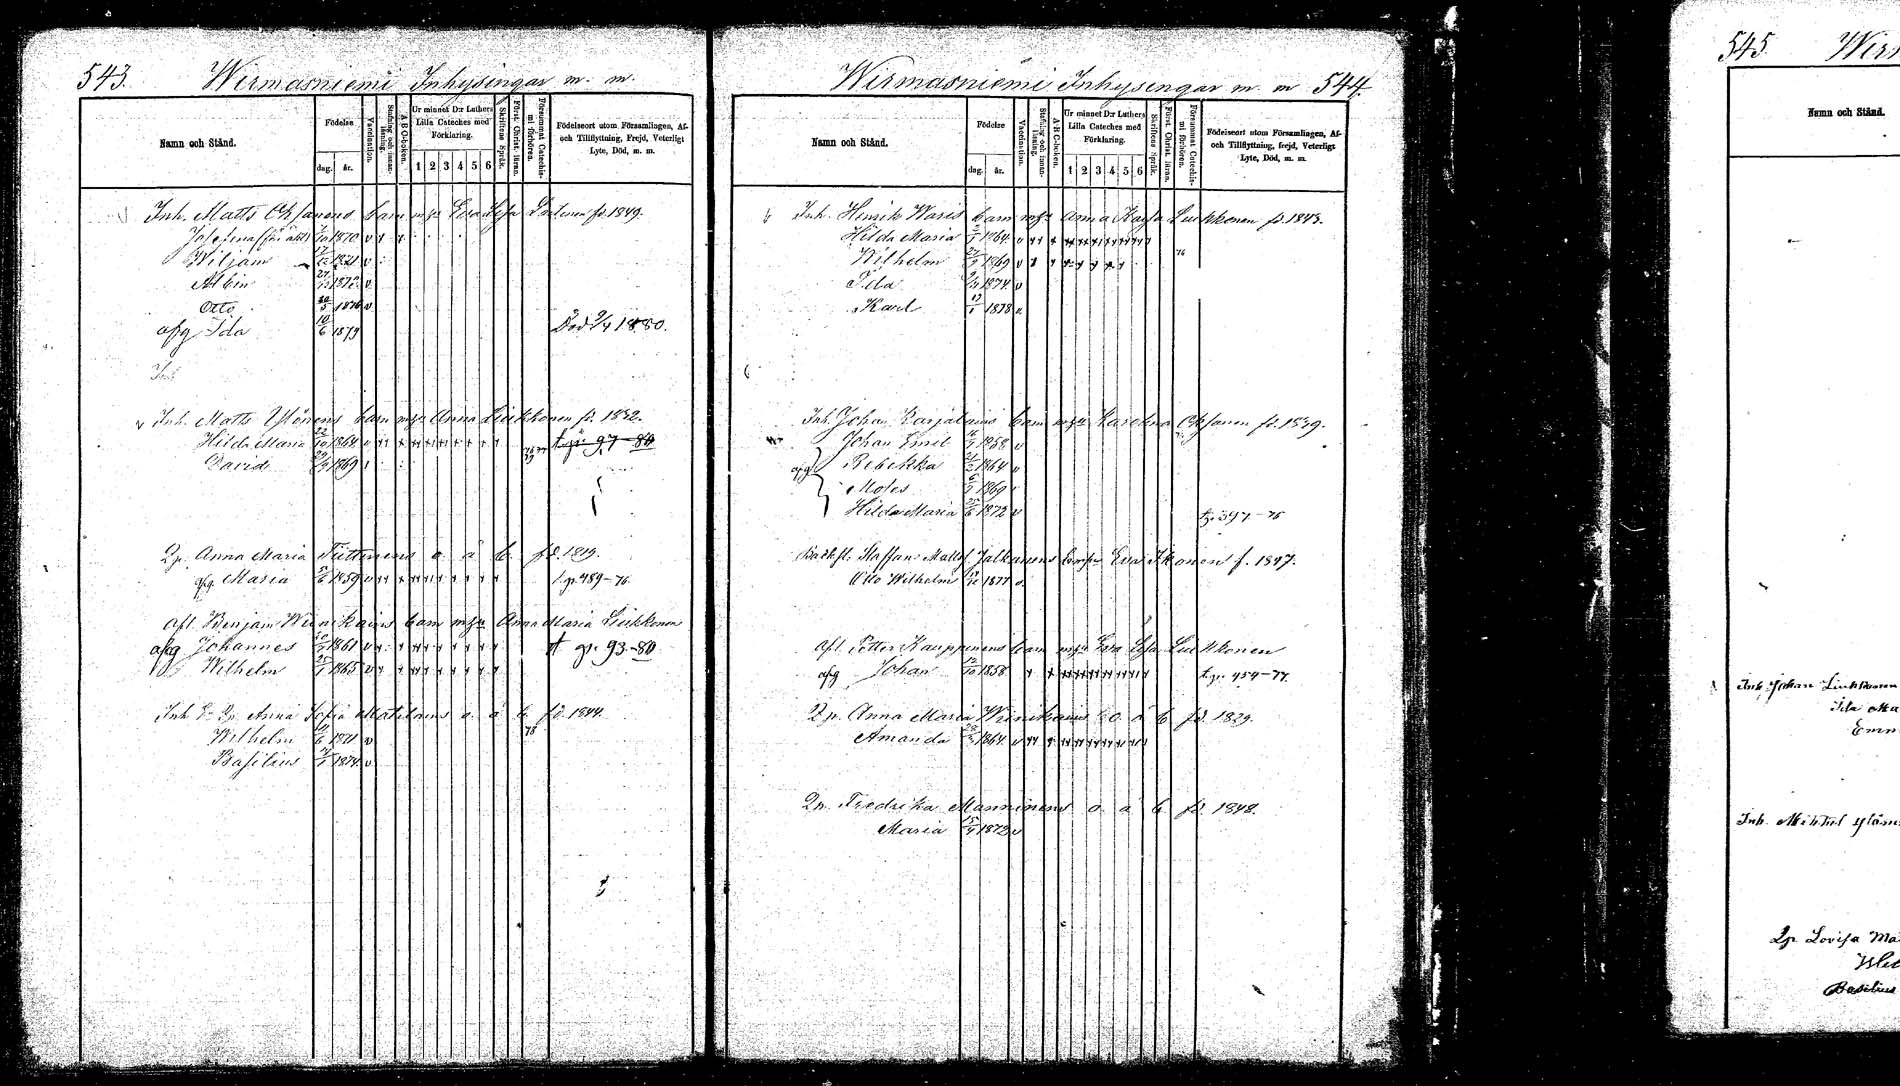 543. Wirmasniemi Inhysingar m. m.
Namn och Stånd.
Födelse
dag. år.
Vaccination.
Stafning och innan-läsning.
A B C-boken.
Ur minnet D:r Luthers Lilla Cateches med Förklaring.
1 2 3 4 5 6
Skriftens Språk.
Först. Christ. läran.
Försummat Catechismi förhören.
Födelseort utom Församlingen, Af- och Tillflyttning, Frejd, Veterligt Lyte, Död, m. m.
Inh. Matts Oksanens barn m hu Eva Lisa fd. 1849.
Josefina 1870 v
Wiljam 1871 v
Albin 27/12 1872 v
Otto 1876 v
afg Ida 10/6 1879 Död 9/4 1880.
Inh
Inh. Matts Ylönens barn m hu Anna Liukkonen fd. 1832.
Hilda Maria 22/10 1864 v
David 1869
Qp. Anna Maria Tiittinens o ä b. fd. 1819.
afg Maria 1859 v p. 489-76.
Afl. Benjam Winikains barn m hu Anna Maria Liukkonen
afg Johannes 1861 v p. 93-80
Wilhelm 25/1 1865 v
Inh Qp. Anna Sofia Matilains o ä b fd. 1844.
Wilhelm 1871 v 78
Basilius 1874 v
Wirmasniemi Inhysingar m. m 544.
Namn och Stånd.
Födelse
dag. år.
Vaccination.
Stafning och innan-läsning.
A B C-boken.
Ur minnet D:r Luthers Lilla Cateches med Förklaring.
1 2 3 4 5 6
Skriftens Språk.
Först. Christ. läran.
Försummat Catechismi förhören.
Födelseort utom Församlingen, Af- och Tillflyttning, frejd, Veterligt Lyte, Död, m. m.
Inh. Henrik Waris barn m hu Anna Kajsa Liukkonen fd. 1843.
Hilda Maria 1864 v
Wilhelm 1869 v 76
Ida 1874 v
Karl 1878 v
Inh. Johan Karjalains barn m hu Karolina Oksanen fd. 1839.
Johan Emil 1858 v
afg Rebekka 21/2 1864 v
Moses 1869
Hilda Maria 1872 v p. 397-76
Backst. Staffan Mattss Jalkanens barn m hu Eva Ikonen f. 1847.
Otto Wilhelm 1877 v.
Afl. Petter Kauppinens barn m hu Eva Lisa Liukkonen
afg Johan 12/10 1858 p. 454-77.
Qp. Anna Maria Winikains o ä b fd. 1829.
Amanda 1864 v
Qp. Fredrika Manninens o ä b fd. 1848.
Maria 15/9 1872 v
545. Wirm
Namn och Stånd.
Inh. Johan Liukkonen
Ida Ma
Emm
Inh. Mikkel Ylön
Qp Lovisa Ma
Basilius